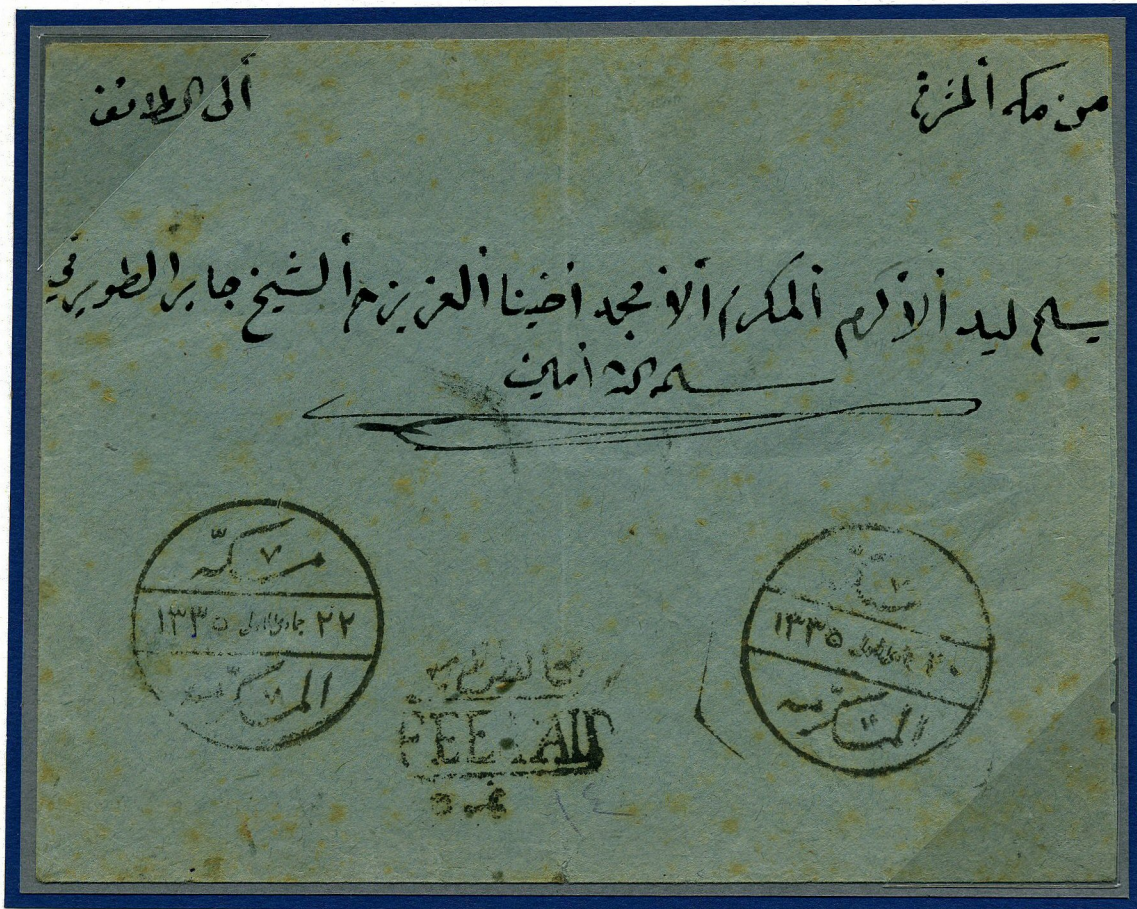 من مكه ألمشرفة
ألى الطائف
يسلم ليد ألأكرم ألمكرم ألأمجد أخينا ألعزيز م ألشيخ جابر الطويرقي
سلمه الله أمين
مكّه
٢٢ جمادى الاول ١٣٣٥
المكرّمه
مكّه
٢٠ جمادى الاول ١٣٣٥
المكرّمه
FEE PAID